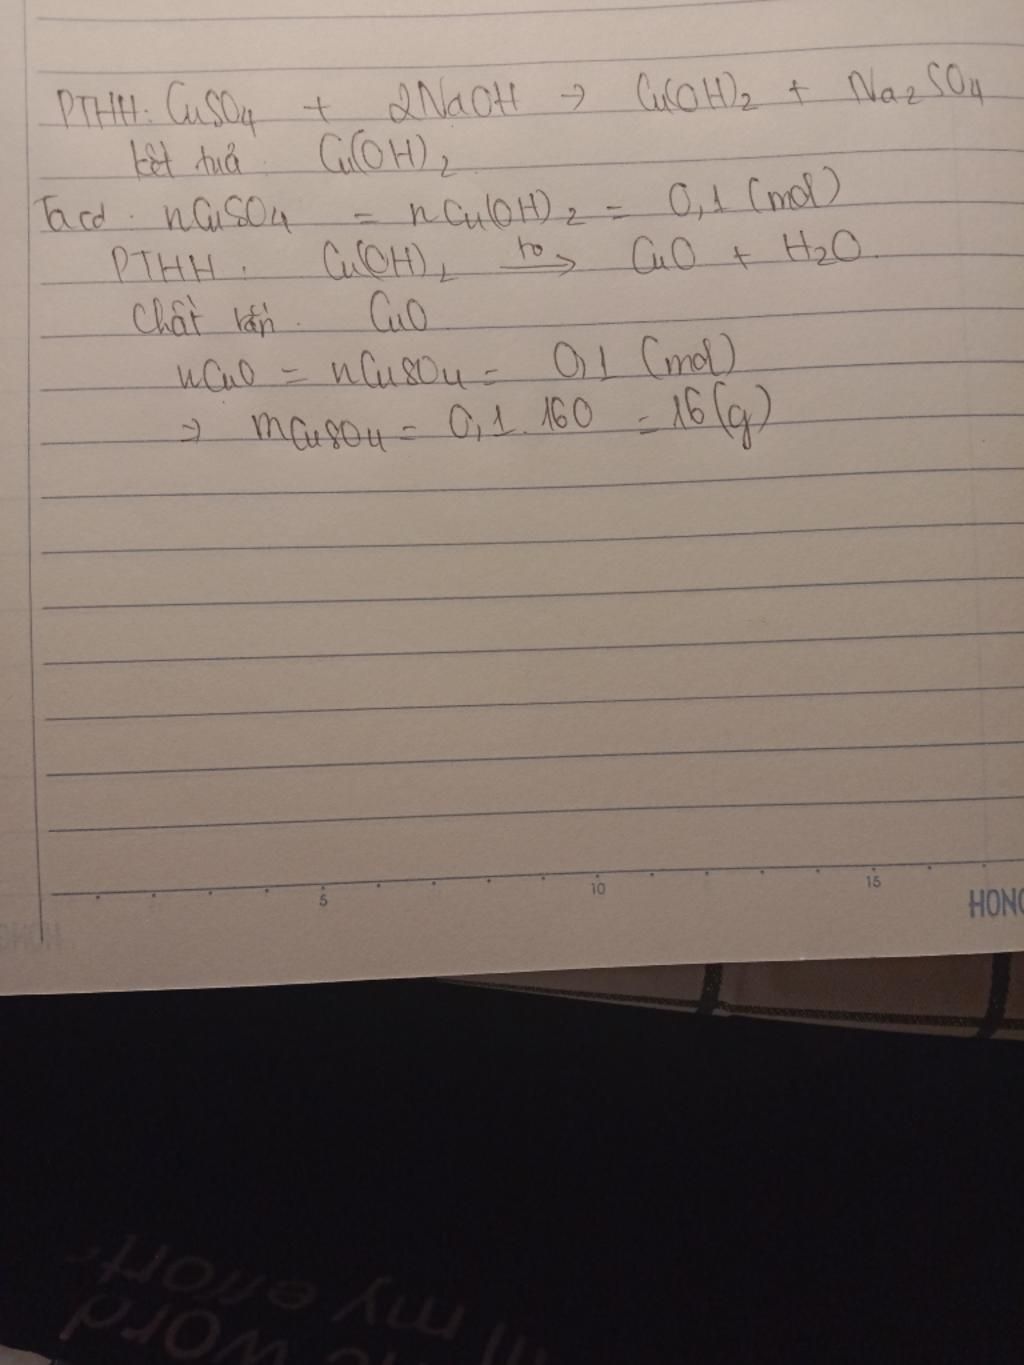 PTHH: CuSO4 + 2NaOH → Cu(OH)2 + Na2SO4
kết tuả Cu(OH)2
Ta có: nCuSO4 = nCu(OH)2 = 0,1 (mol)
PTHH: Cu(OH)2 to → CuO + H2O
Chất rắn: CuO
nCuO = nCuSO4 = 0,1 (mol)
→ mCuSO4 = 0,1.160 = 16(g)
5 10 15
HONG
word
my effort